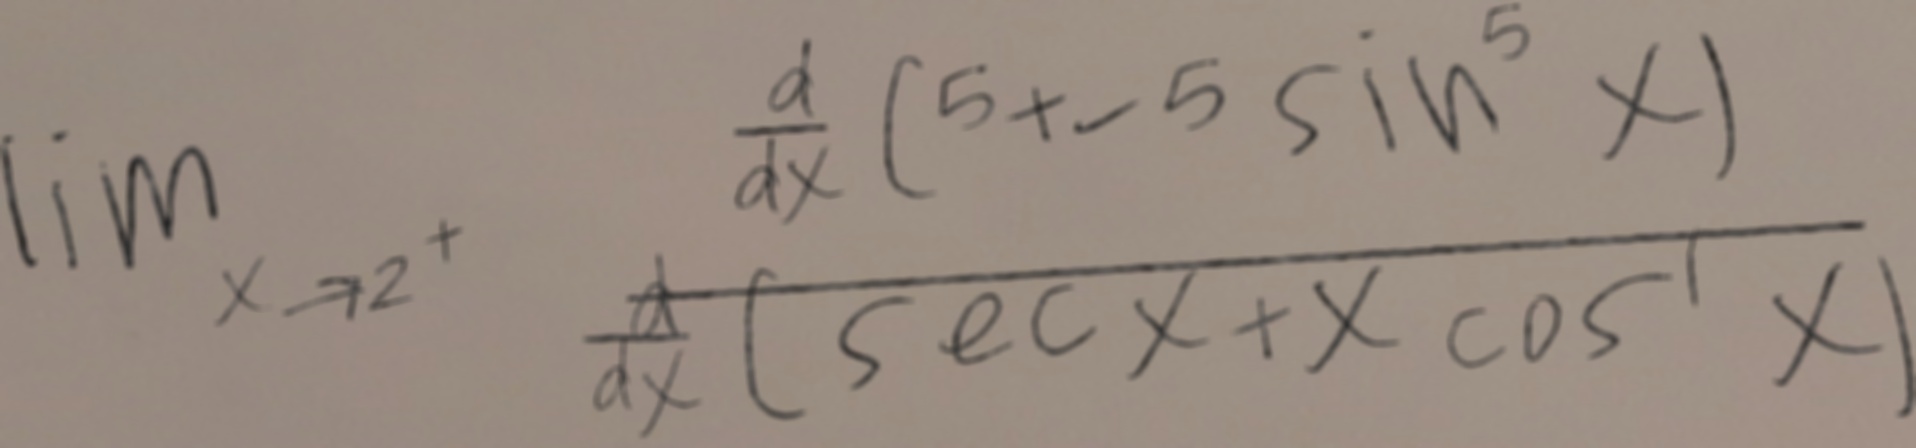 \lim_{x \to 2^+} \frac{\frac{d}{dx}(5+-5\sin^5 x)}{\frac{d}{dx}(\sec x + x\cos^1 x)}